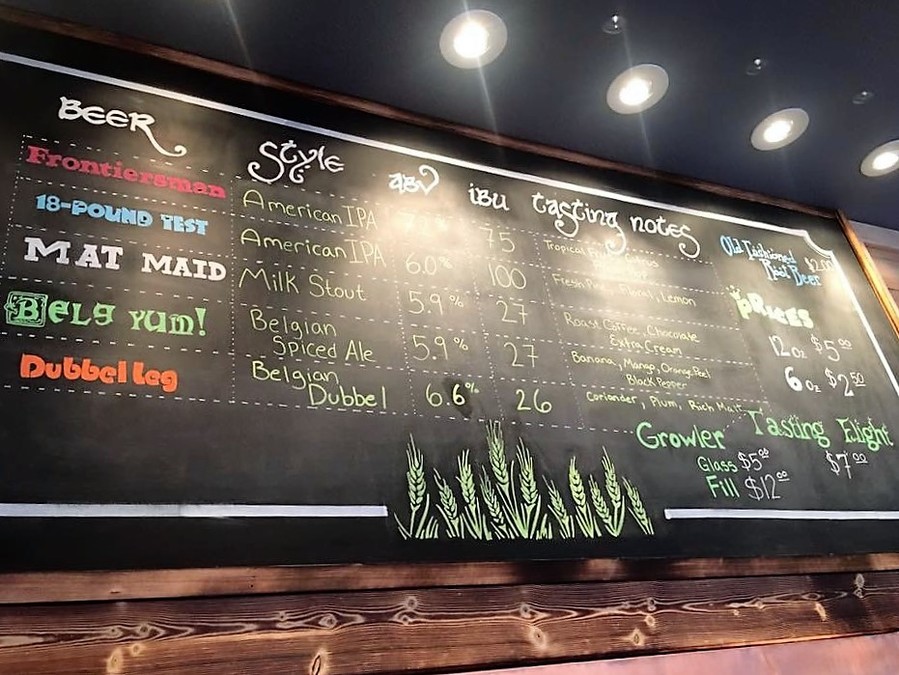 BEER Style abv ibu tasting notes
Frontiersman American IPA 75 Tropical
18-POUND TEST American IPA 6.0% 100 Fresh Floral, Lemon
MAT MAID Milk Stout 5.9% 27 Roast Coffee, Chocolate
Extra Cream
Belg YUM! Belgian
Spiced Ale 5.9% 27 Banana, Mango, Orange Peel
Black Pepper
Dubbel Leg Belgian
Dubbel 6.6% 26 Coriander, Plum, Rich Malt
Old Fashioned
Root Beer $2.00
PRICES
12 oz $5.00
6 oz $2.50
Growler
Glass $5.00
Fill $12.00
Tasting Flight
$7.00